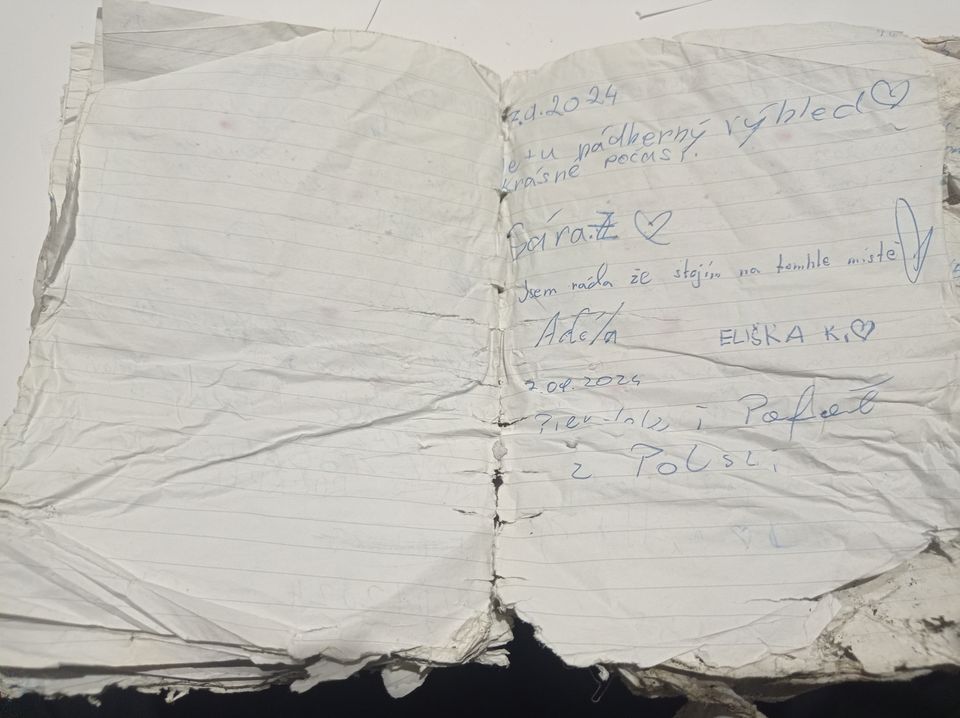 7.9.2024
Je tu nádherný výhled ♡
krásné počasí.
Sára.Z ♡
Jsem ráda že stojím na tomhle místě!
Adéla ELIŠKA K. ♡
7.09.2024
i Rafał
z Polski